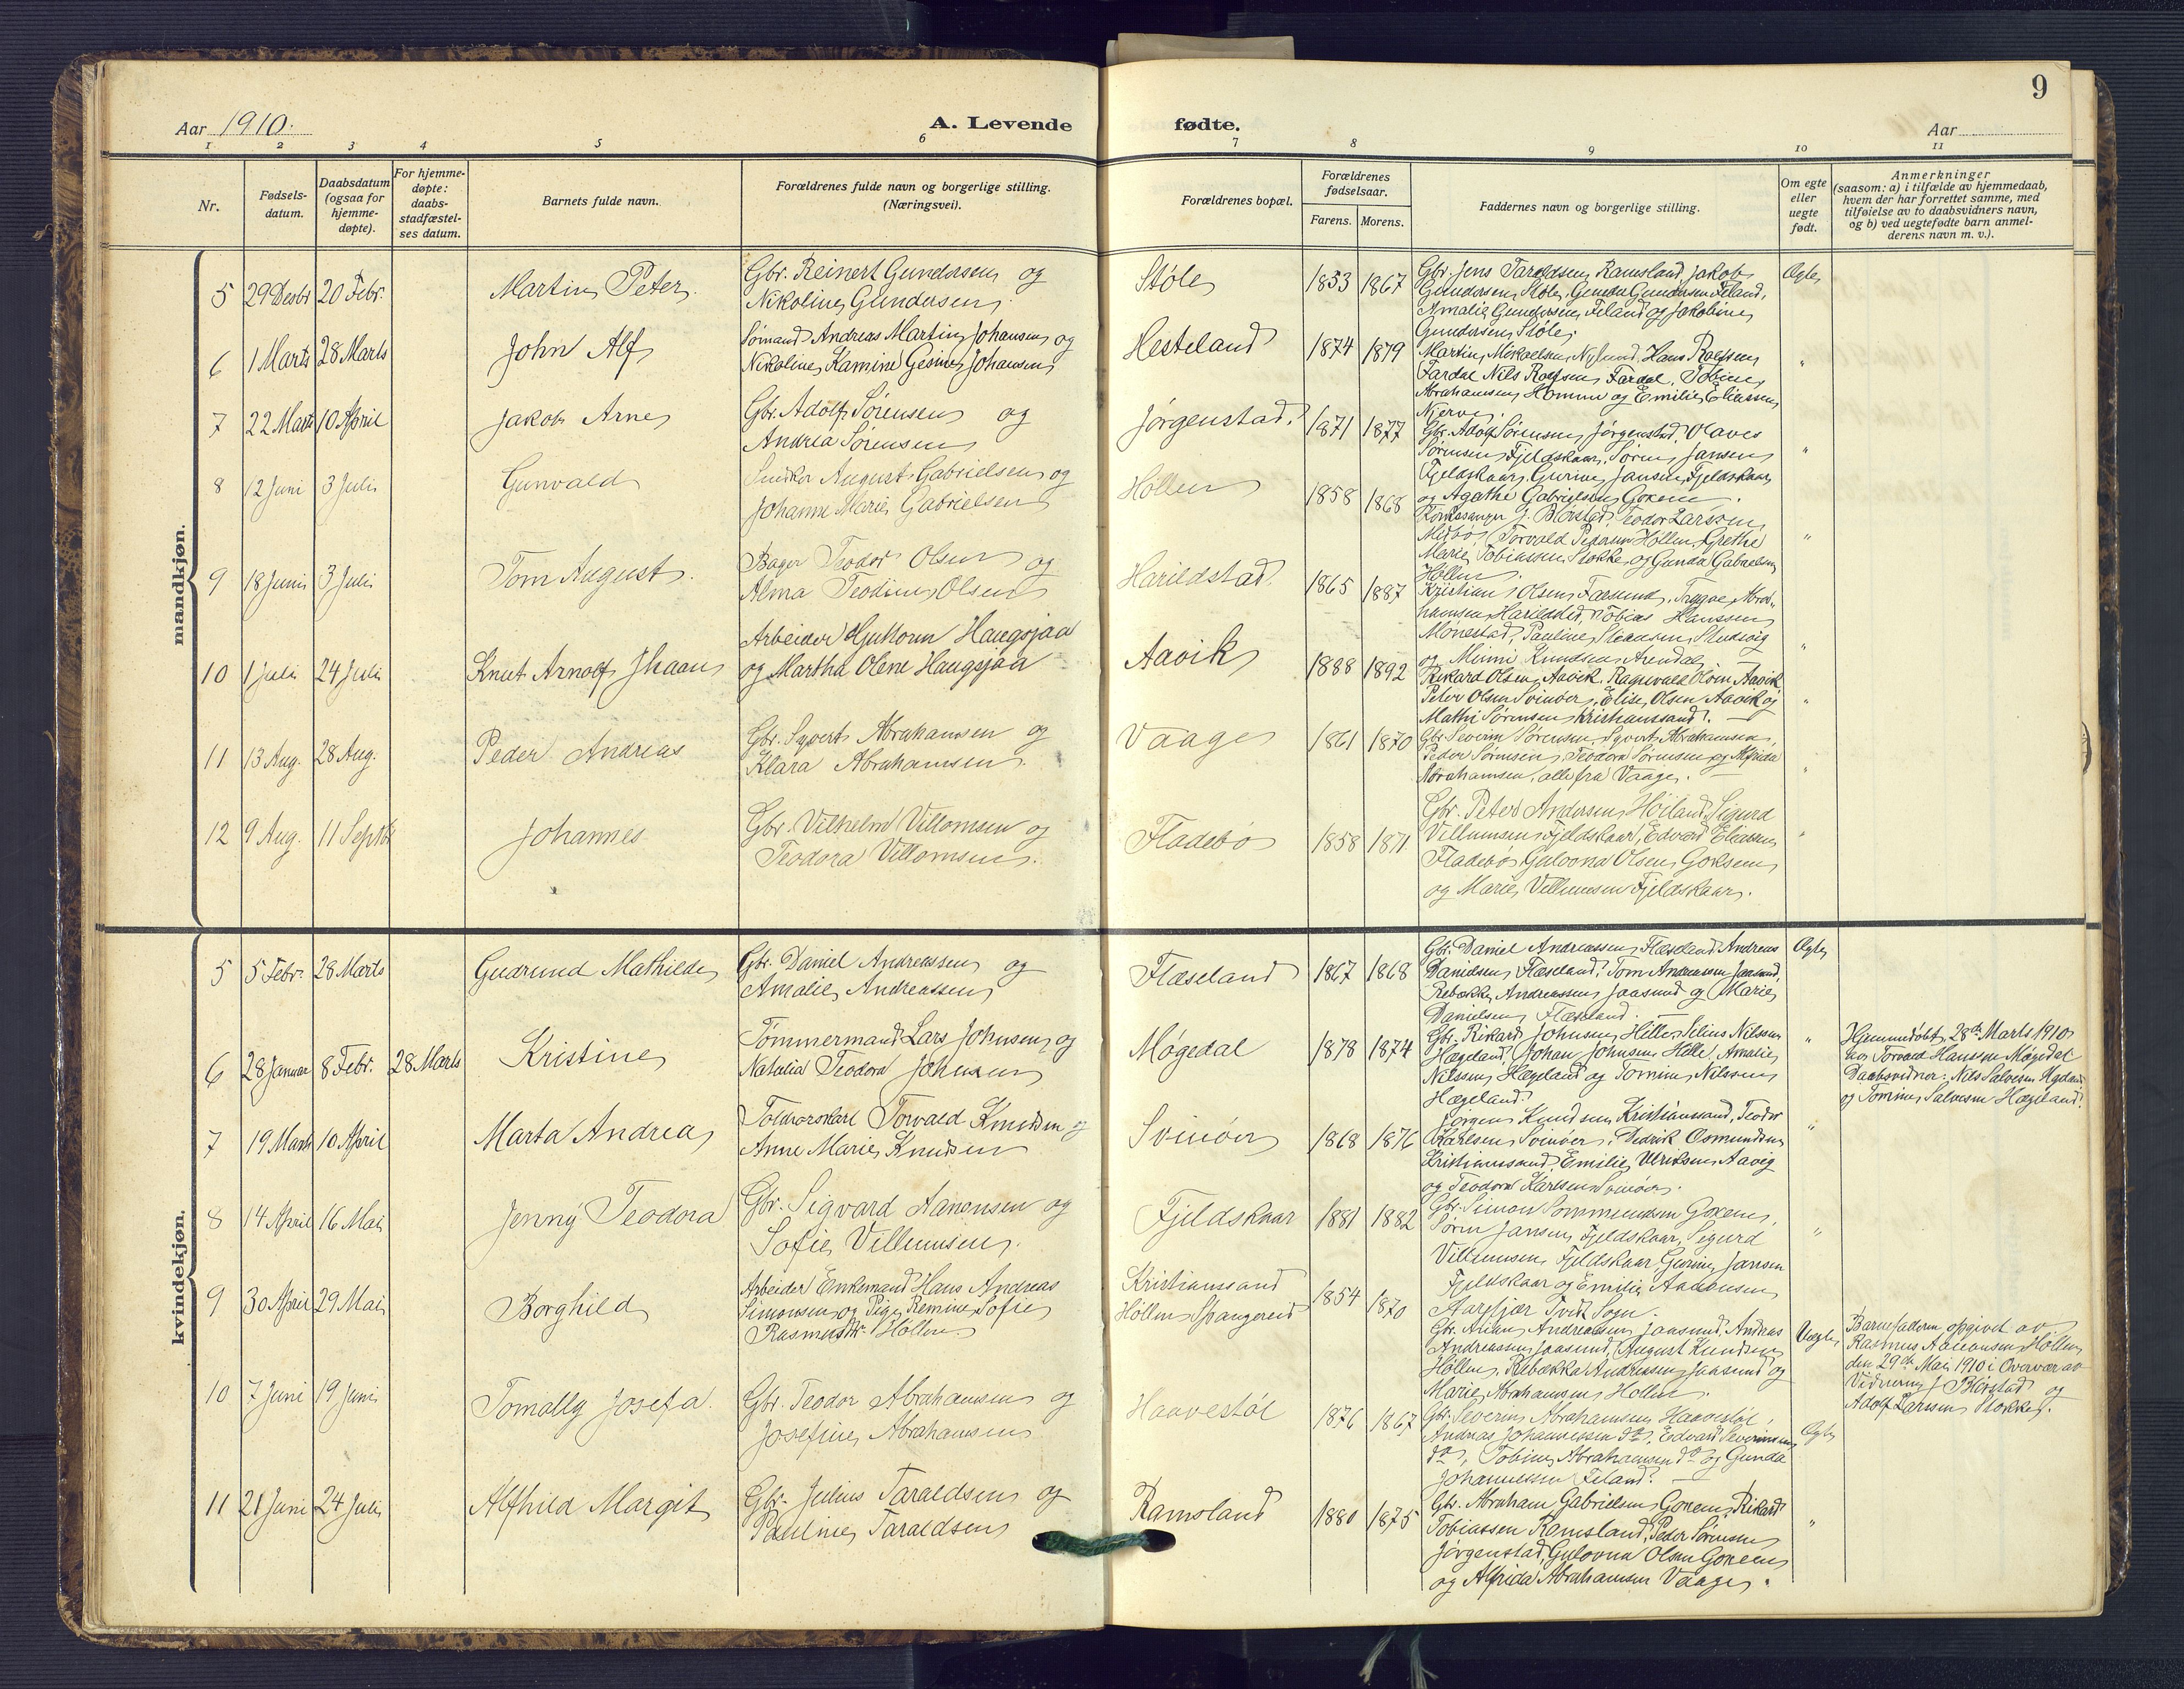 Aar 1910.
A. Levende
fødte.
9
Aar
1 2 3 4 5 6 7 8 9 10 11
Nr.
Fødsels-
datum.
Daabsdatum
(ogsaa for
hjemme-
døpte).
For hjemme-
døpte:
daabs-
stadfæstel-
ses datum.
Barnets fulde navn.
Forældrenes fulde navn og borgerlige stilling.
(Næringsvei).
Forældrenes bopæl.
Forældrenes
fødselsaar.
Farens. Morens.
Faddernes navn og borgerlige stilling.
Om egte
eller
uegte
født.
Anmerkninger
(saasom: a) i tilfælde av hjemmedaab,
hvem der har forrettet samme, med
tilføielse av to daabsvidners navn,
og b) ved uegtefødte barn anmel-
derens navn m. v.).
mandkjøn.
5 29 Desbr 20 Febr. Martin Peter.
Gbr. Reinert Gundersen og
Nikoline Gundersen.
Støle 1853 1867
Gbr. Jens Taraldsen Ramsland, Jakob
Gundersen Støle, Gunda Gundersen Feland,
Amalie Gundersen Feland og Jakobine
Gundersen Støle.
Ægte
6 1 Marts 28 Marts John Alf
Sømand Andreas Martin Johansen og
Nikoline Kamine Gesine Johansen
Hesteland 1874 1879
Martin Mikaelsen Nylund, Hans Rolfsen
Fardal Nils Rolfsen Fardal, Tobine
Abrahamsen Homme og Emilie Eliassen
Njerve.
"
7 22 Marts 10 April Jakob Arne
Gbr. Adolf Sørensen og
Andrea Sørensen
Jørgenstad. 1871 1877
Gbr. Adolf Sørensen Jørgenstad, Olaves
Sørensen Fjeldskaar, Søren Jansen
Fjeldskaar, Gurine Jansen Fjeldskaar
og Agathe Gabrielsen Goxem.
"
8 12 Juni 3 Juli Gunvald
August Gabrielsen og
Johanne Marie Gabrielsen
Høllen 1858 1868
Kirkesanger J. Birstad, Teodor Larssen
Midbø, Torvald Pedersen Høllen, Grethe
Marie Tobiassen Stokke og Gunda Gabrielsen
Høllen.
"
9 18 Juni 3 Juli Tom August.
Bager Teodor Olsen og
Alma Teodine Olsen
Harildstad. 1865 1887
Kristian Olsen Farsund, Trygve Abra-
hamsen Harildstad, Tobias Hanssen
Monestad, Pauline Stensen Studevig
og Minni Knudsen Arendal
"
10 1 Juli 24 Juli Knut Arnolf Jhaan
Arbeider Guttorm Haugsjaa
og Martha Olene Haugsjaa
Aavik 1888 1892
Rikard Olsen Aavik, Ragnvald Olsen Aavik
Peter Olsen Svinøer, Elise Olsen Aavik og
Mathi Sørensen Kristianssand.
"
11 13 Aug. 28 Aug. Peder Andreas
Gbr. Syvert Abrahamsen og
Klara Abrahamsen.
Vaage 1861 1870
Gbr. Severin Sørensen, Syvert Abrahamsen,
Peder Sørensen, Teodora Sørensen og Alfrida
Abrahamsen, alle fra Vaage.
"
12 9 Aug. 11 Septbr Johannes
Gbr. Vilhelm Villomsen og
Teodora Villomsen.
Fladebø 1858 1871
Gbr. Peter Andersen Høiland, Sigurd
Villumsen Fjeldskaar, Edvard Eliassen
Fladebø, Gulovna Olsen Goksem
og Marie Villumsen Fjeldskaar.
"
kvindekjøn.
5 5 Febr. 28 Marts Gudrund Mathilde
Gbr. Daniel Andreassen og
Amalie Andreassen
Flæseland 1867 1868
Gbr. Daniel Andreassen Flæseland, Andreas
Danielsen Flæseland, Tom Andreassen Jaasund,
Rebekka Andreassen Jaasund og Marie
Danielsen Flæseland.
Ægte
6 28 Januar 8 Febr. 28 Marts Kristine
Tømmermand Lars Johnsen og
Natalia Teodora Johnsen
Møgedal 1878 1874
Gbr. Rikard Johnsen Hille, Selius Nilssen
Hægeland, Johan Johnsen Hille, Amalie
Nilssen Hægeland og Tomine Nilssen
Hægeland.
"
Hjemmedøbt 28de Marts 1910
Torvald Hanssen Møgedal
Daabsvidner: Nils Salvesen Hægeland
og Tomine Salvesen Hægeland.
7 19 Marts 10 April Marta Andrea
Toldrorskarl Torvald Knudsen og
Anne Marie Knudsen
Svinøer 1868 1876
Jørgen Knudsen Kristianssand, Teodor
Karlsen Svinøer, Didrik Osmundsen
Kristianssand, Emilie Ulriksen Aavig
og Teodora Karlsen Svinøer.
"
8 14 April 16 Mai Jenny Teodora
Gbr. Sigvard Aanensen og
Sofie Villumsen.
Fjeldskaar 1881 1882
Gbr. Simon Tommensen Goxem,
Søren Jansen Fjeldskaar, Sigurd
Villumsen Fjeldskaar, Gurine Jansen
Fjeldskaar og Emilie Aanonsen
Aargjær Tveit Sogn.
"
9 30 April 29 Mai Borghild
Arbeider Enkemand Hans Andreas
Simonsen og Pige Remine Sofie
Rasmusdtr. Høllen.
Kristianssand
Høllen Spangereid 1854 1870
Gbr. Andreassen Jaasund, Andreas
Andreassen Jaasund, August Knudsen
Høllen, Rebekka Andreassen Jaasund og
Marie Abrahamsen Høllen.
Uægte
Barnefaderen opgivet av
Rasmus Aanonsen Høllen
den 29de Mai 1910 i Overvær av
Vidnerne J. Birstad og
Adolf Larssen Stokke.
10 7 Juni 19 Juni Tomally Josefa.
Gbr. Teodor Abrahamsen og
Josefine Abrahamsen
Haavestøl 1876 1867
Gbr. Severin Abrahamsen Haavestøl,
Andreas Johannessen do, Edvard Severinsen
do, Tobine Abrahamsen do og Gunda
Johannessen Feland.
Ægte
11 21 Juni 24 Juli Alfhild Margit
Gbr. Julius Taraldsen og
Pauline Taraldsen
Ramsland 1880 1875
Gbr. Abraham Gabrielsen Goxem, Rikard
Tobiassen Ramsland, Peder Sørensen
Jørgenstad, Gulovna Olsen Goxem
og Alfrida Abrahamsen Vaage.
"